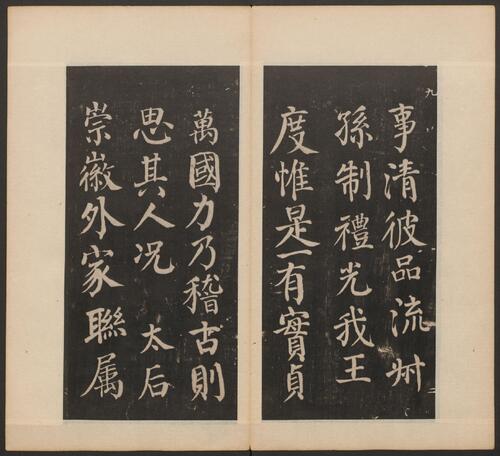 九
事清彼品流州
孫制禮光我王
度惟是一有實貞
萬國力乃稽古則
思其人况　太后
崇徽外家聯属